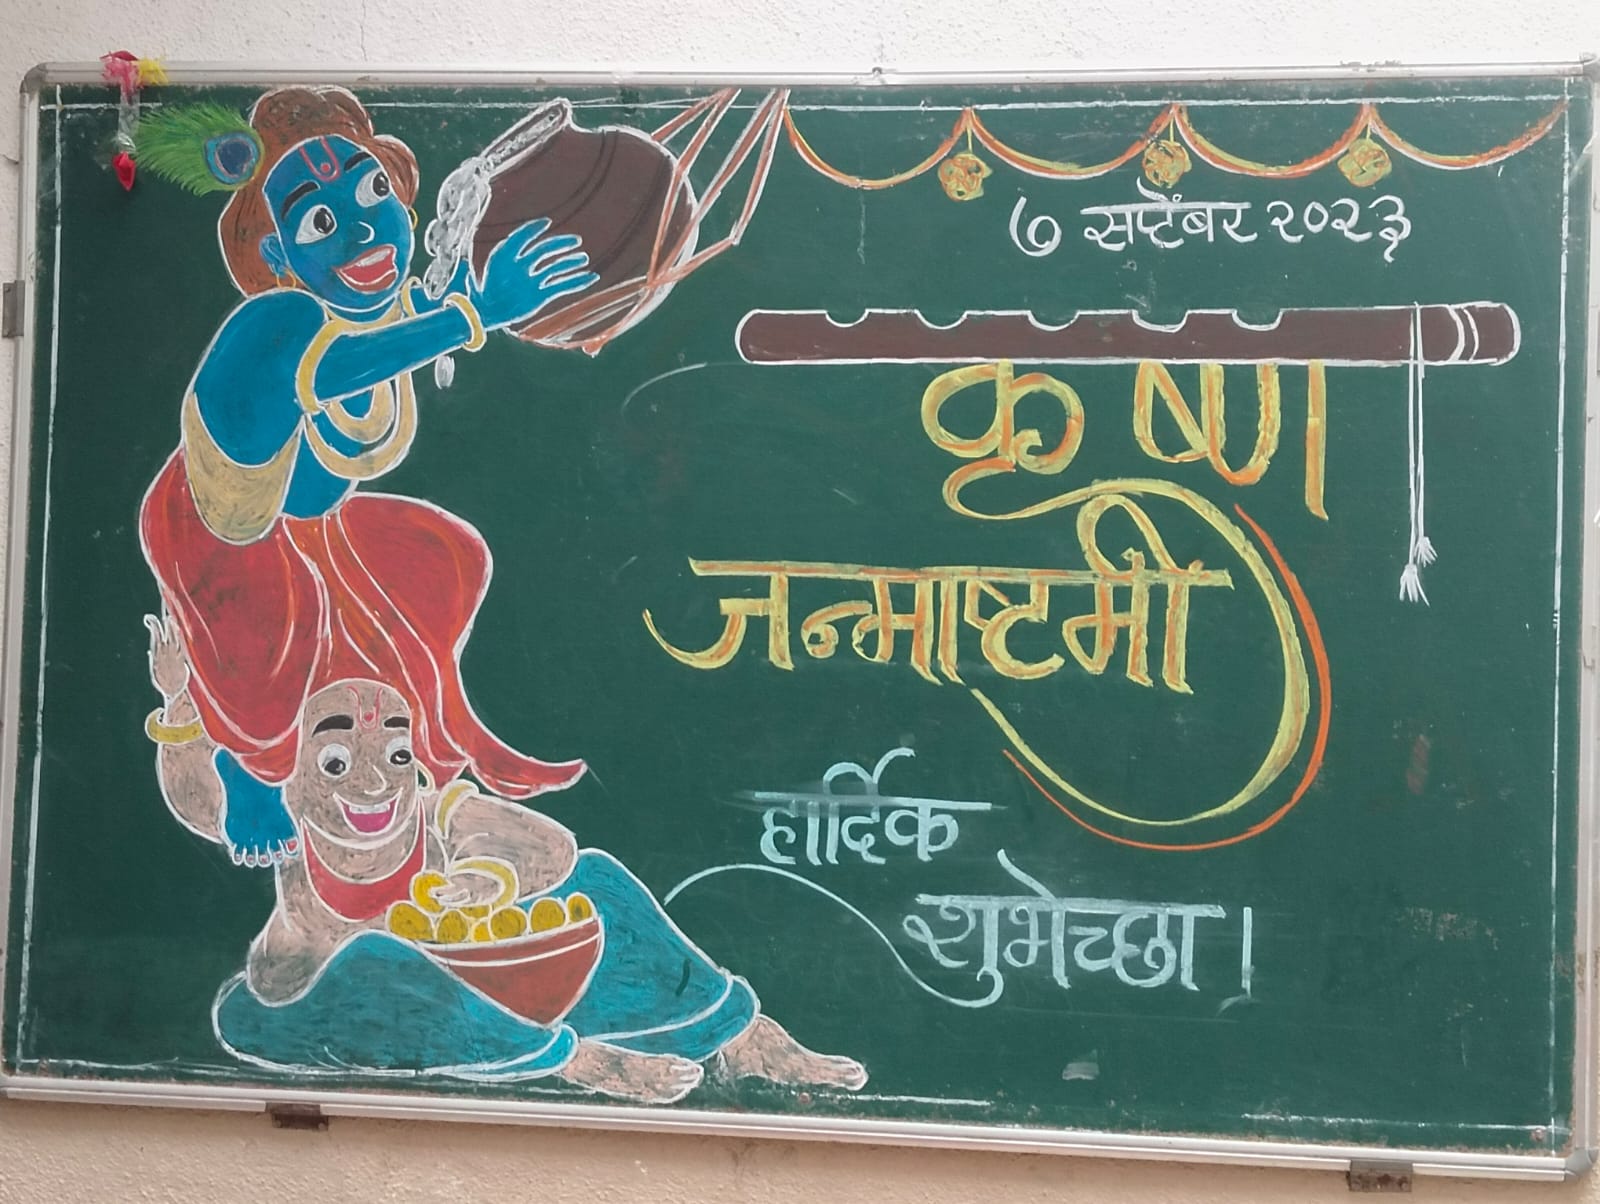 ७ सप्टेंबर २०२३
कृष्ण
जन्माष्टमी
हार्दिक
शुभेच्छा।